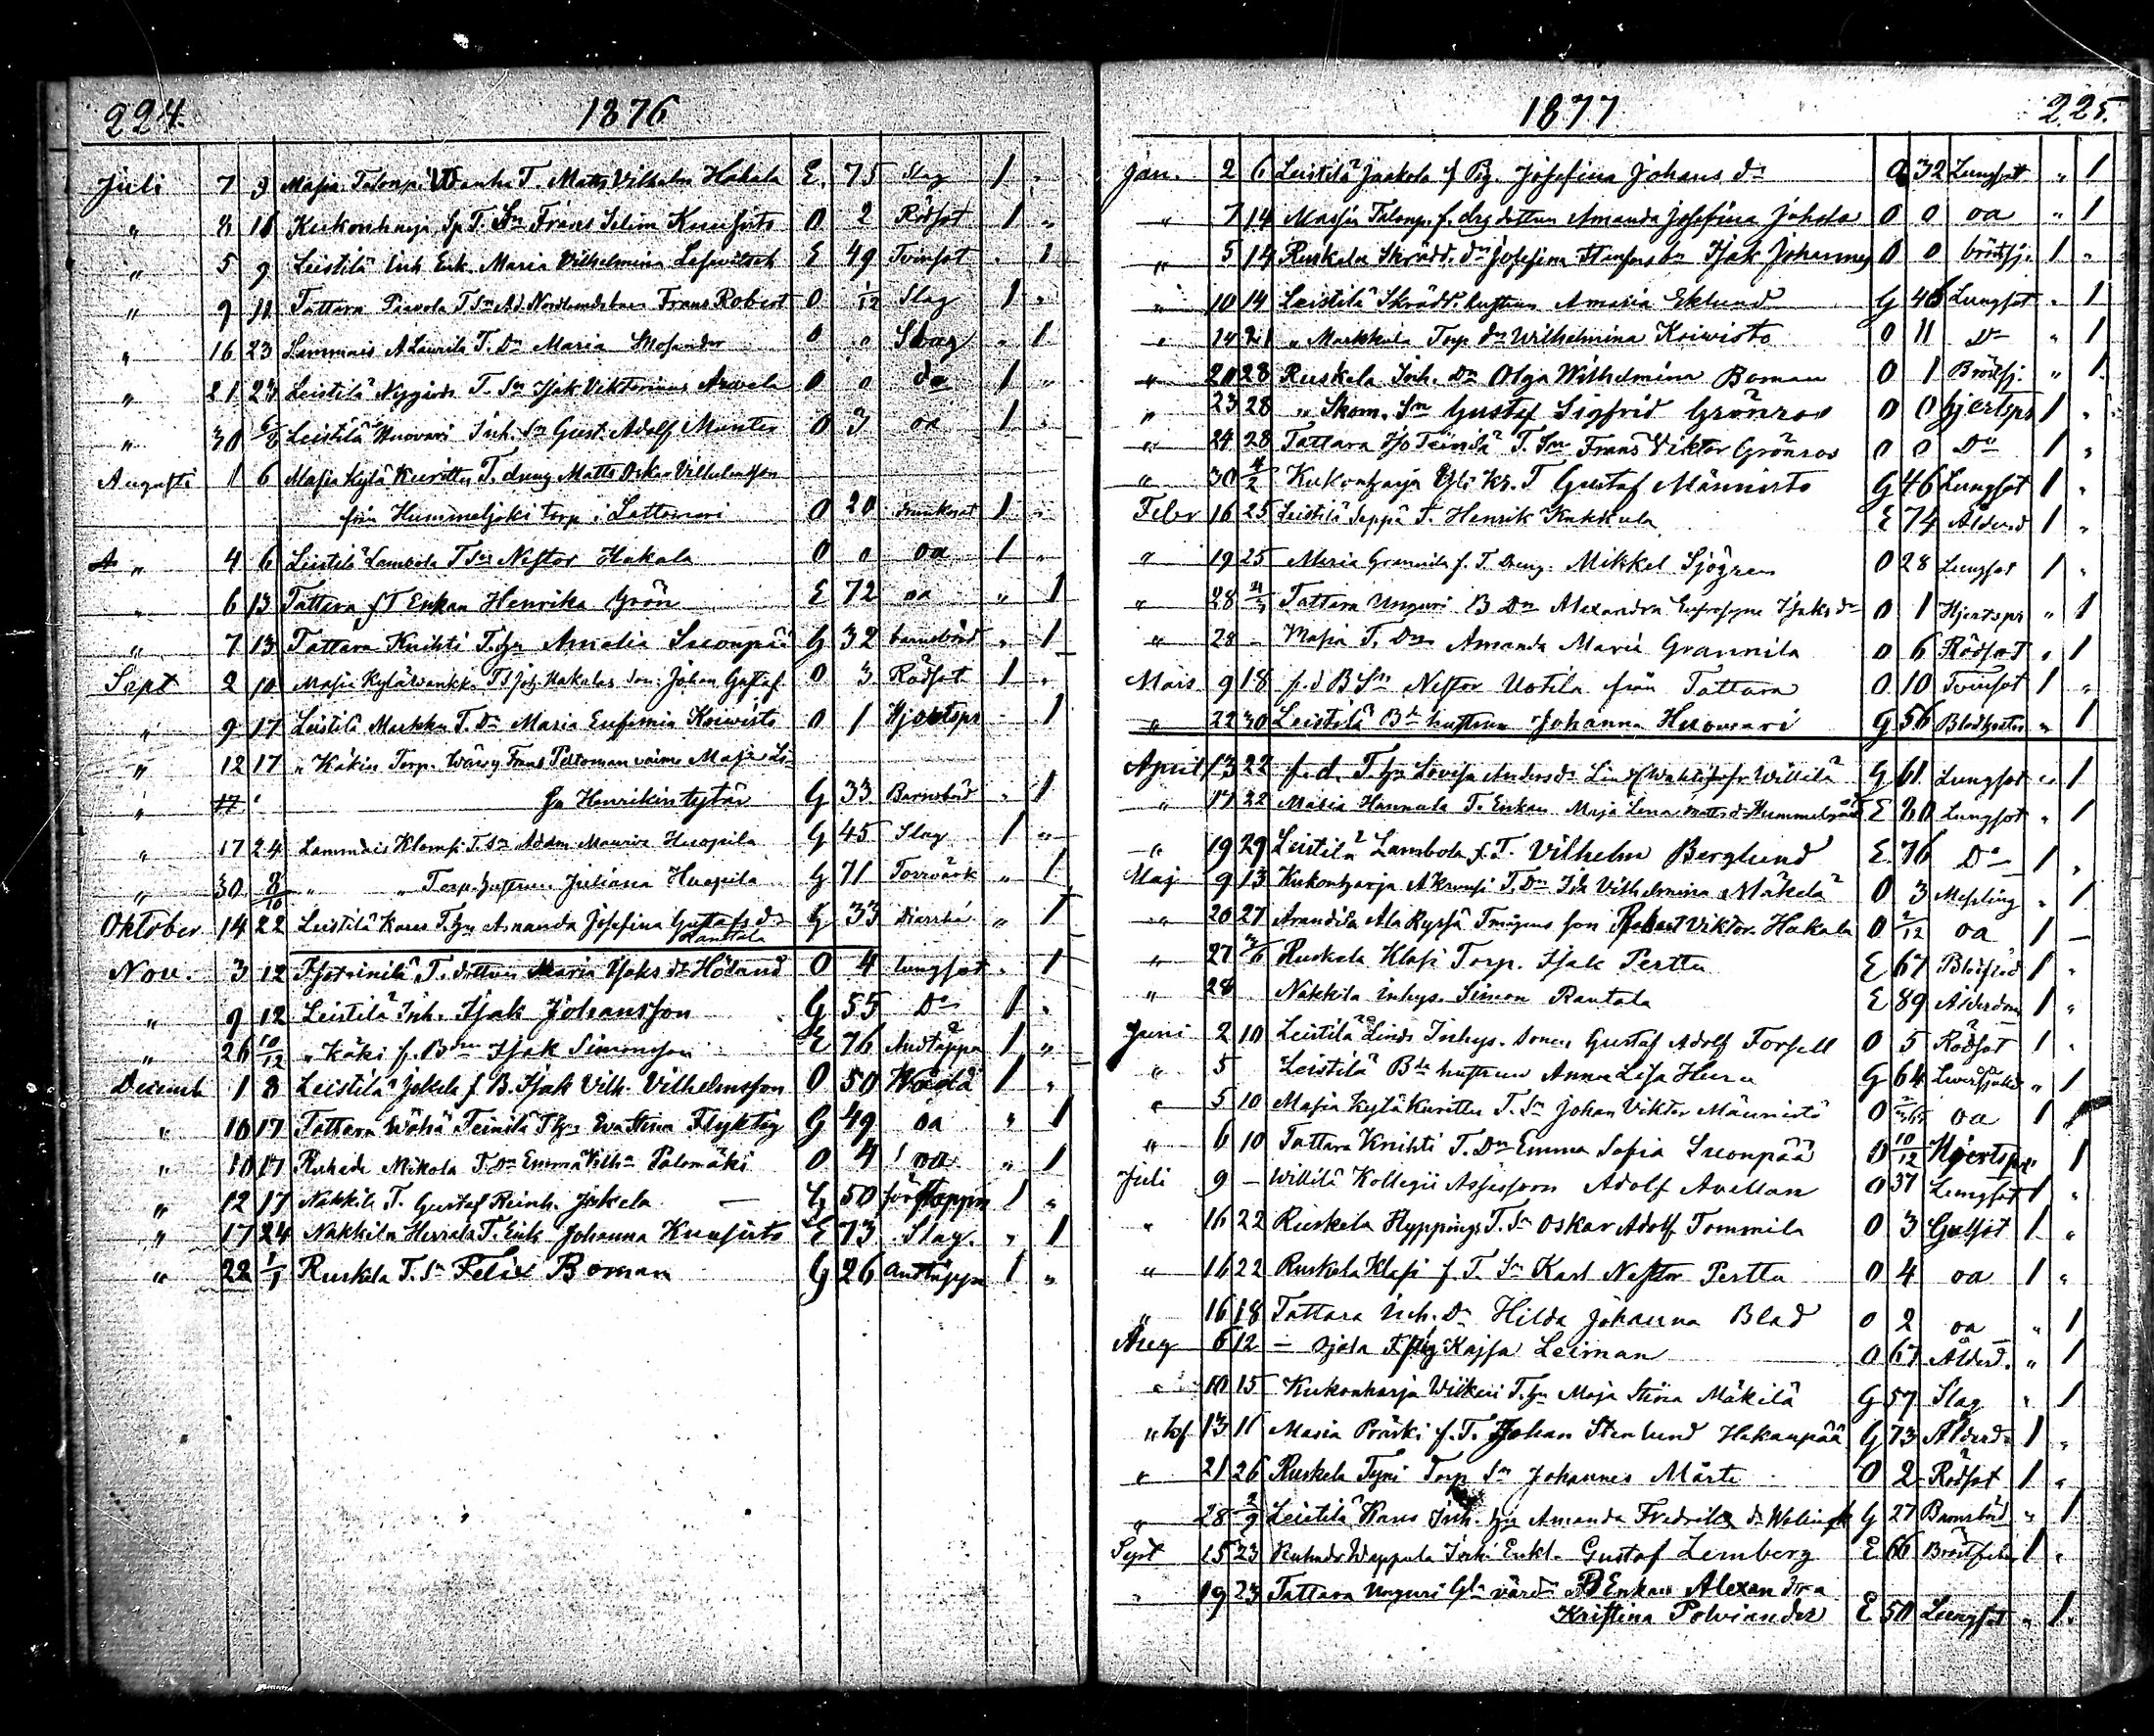 224. 1876
Juli 7 9 Masia Talonp. Wanha T. Matts Vilhelm Hakala E. 75 Slag 1 "
" 8 16 Kukonharja Sp T. Sn Frans Selim Knuusirto O 2 Rödsot 1 "
" 5 9 Leistilä Inh Enk. Maria Vilhelmina E 49 Tvinsot " 1
" 9 11 Tattara Paavola T Sn Ad. Frans Robert O 1/12 Slag 1 "
" 16 23 Lammais A Laurila T. Dr Maria O 0 Slag " 1
" 21 23 Leistilä Nygårds T. Sn Isak Viktorinus O 0 do 1 "
" 30 6/8 Leistilä Huovari Inh. Sn Gust. Adolf Munter O 3 oa 1 "
Augusti 1 6 Masia Kylä Kuritu T. dräng Matts Oskar Vilhelmsson
från Hummeljoki torp i Lattomeri O 20 drunknat 1 "
" 4 6 Leistilä Lambola T Sn Nestor Hakala O 0 oa 1 "
" 6 13 Tattara f T Enkan Henrika Grön E 72 oa " 1
" 7 13 Tattara Knihti T. hu Amalia Suonpää G 32 barnsbörd " 1
Sept 2 10 Masia Kyläwanhk. T Joh Hakalas son Johan Gustaf O 3 Rödsot 1 "
" 9 17 Leistilä Markku T. Dr Maria Eufemia Koiwisto O 1 Hjertspr " 1
" 12 17 " Käkis Torp. Wäwy Frans Pertoman vaimo Maja Li-
" sa Henrikin tytär G 33 Barnsbörd " 1
" 17 24 Lammais Klemsi T. Sn Adam Mauriz Huopila G 45 Slag 1 "
" 30 8/10 " " Torp. hustrun Juliana Huopila G 71 Torrvärk " 1
Oktober 14 22 Leistilä Kares T. hu Amanda Josefina Gustafs dr Ranttala G 33 diarrhé " 1
Nov. 3 12 T. dottern Maria Isaks dr Höland O 4 lungsot " 1
" 9 12 Leistilä Inh. Isak Johansson G 55 Do 1 "
" 26 10/12 " Käki f. Bden Isak Simonsson E 76 Andtäppa 1 "
Decemb 1 8 Leistilä Jakola f B. Isak Vilh. Vilhelmsson O 50 Wåda 1 "
" 10 17 Tattara Wähä Teinilä T hu Eva Stina Flyktig G 49 oa " 1
" 10 17 Ruhade Mikola T. Dr Emma Vilhna Palomäki O 4 oa " 1
" 12 17 Nakkila T. Gustaf Reinh. Jakola G 50 förstoppn 1 "
" 17 24 Nakkila Herrala T. Enk. Johanna Knuusirto E 73 Slag. " 1
" 22 1/1 Ruskela T. Sn Felix Boman G 26 Andtäppa 1 "
1877 225.
Jan. 2 6 Leistilä Jaakola f Pig. Josefina Johans dr O 32 Lungsot " 1
" 7 14 Masia Talonp. f. drg dottern Amanda Josefina Johsdr O 0 oa " 1
" 5 14 Ruskela Skrädd. Isak Johannes O 0 bröstsj. 1 "
" 10 14 Leistilä Skrädd. hustrun Amaria Eklund G 46 Lungsot " 1
" 14 21 " Markkula Torp dr Wilhelmina Koiwisto O 11 Do " 1
" 20 28 Ruskela Inh. Dr Olga Wilhelmina Boman O 1 Bröstsj. " 1
" 23 28 " Skom. Sn Gustaf Sigfrid Grönroos O 0 hjertspr 1 "
" 24 28 Tattara Iso Teinilä T. Sn Frans Viktor Grönroos O 0 Do 1 "
" 30 4/2 Kukonharja Yli Kr. T Gustaf Männisto G 46 Lungsot 1 "
Febr 16 25 Leistilä Seppä T. Henrik Kukkula E 74 Ålderd 1 "
" 19 25 Masia Grannila f. T. dräng. Mikkel Sjögren O 28 Lungsot 1 "
" 28 4/3 Tattara Unguri B Dr Alexandra Eufrosyne Isaks dr O 1 Hjertspr " 1
" 28 - Masia T. Dr Amanda Maria Grannila O 6 Rödsot " 1
Mars 9 18 f. d B Sn Nestor Uotila från Tattara O 10 Tvinsot 1 "
" 22 30 Leistilä Bde hustrun Johanna Huowari G 56 " 1
April 13 22 f. d. T. hu Lovisa Anders dr Lind Willilä G 61. Lungsot " 1
" 17 22 Masia Hannula T. Enkan Maja Lena Matts dr E 80 Lungsot " 1
" 19 29 Leistilä Lambola f. T. Vilhelm Berglund E. 76 Do 1 "
Maj 9 13 Kukonharja T. Dr Ida Vilhelmina Mäkelä O 3 Messling " 1
" 20 27 Arandila Ala Ryssä Tmågens son Robert Viktor Hakala O 2/12 oa 1 -
" 27 3/6 Ruskela Klasi Torp. Isak Perttu E 67 1 "
" 28 Nakkila inhys. Simon Rantala E 89 Ålderdom 1 "
Juni 2 10 Leistilä Linds Inhys. sonen Gustaf Adolf Forsell O 5 Rödsot 1 "
" 5 Leistilä Bde hustrun Anna Lisa Huru G 64 " 1
" 5 10 Masia Kylä Kuritu T. Sn Johan Viktor Männistö O oa 1
" 6 10 Tattara Knihti T. Dr Emma Sofia Suonpää O 10/12 Hjertspr " 1
Juli 9 - Willilä Kollegii Assessorn Adolf Avellan O 37 Lungsot 1 "
" 16 22 Ruskela Hyppings T. Sn Oskar Adolf Tommila O 3 Gulsot 1 "
" 16 22 Ruskela Klasi f. T. Sn Karl Nestor Perttu O 4 oa 1 "
" 16 18 Tattara Inh. Dr Hilda Johanna Blad O 2 oa " 1
Aug 6 12 - Ojala Kajsa Leiman O 67 Ålderd. " 1
" 10 15 Kukonharja Wiikeri T. hu Maja Stina Mäkilä G 57 Slag " 1
" 13 16 Masia Präski f. T. Johan Stenlund Hakanpää G 73 Ålderd. 1 "
" 21 26 Ruskela Tyni Torp Sn Johannes Märti O 2 Rödsot 1 "
" 28 2/9 Leistilä Kares Inh. hu Amanda Fredrika G 27 Barnsbörd " 1
Sept 15 23 Ruhade Wappula Inh. Enkl. Gustaf Lemberg E 66 1 "
" 19 23 Tattara Unguri B Enkan Alexandra
Kristina Polviander E 50 Lungsot " 1.